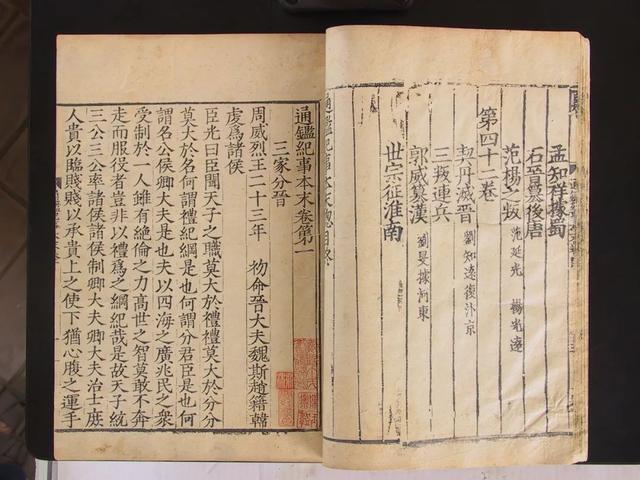 孟知祥據蜀
石晉篡後唐
范楊之叛 范延光 楊光遠
第四十二卷
契丹滅晉 劉知遠復汴京
三叛連兵
郭威篡漢 劉旻據河東
世宗征淮南
通鑑紀事本末總目終
通鑑紀事本末卷第一
三家分晉
周威烈王二十三年 初命晉大夫魏斯趙籍韓
虔爲諸侯
臣光曰臣聞天子之職莫大於禮禮莫大於分分
莫大於名何謂禮紀綱是也何謂分君臣是也何
謂名公侯卿大夫是也夫以四海之廣兆民之衆
受制於一人雖有絕倫之力高世之智莫敢不奔
走而服役者豈非以禮爲之綱紀哉是故天子統
三公三公率諸侯諸侯制卿大夫卿大夫治士庶
人貴以臨賤賤以承貴上之使下猶心腹之運手